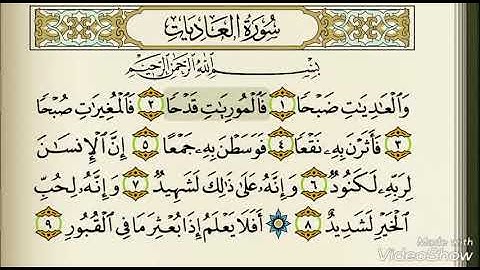 سُورَةُ العَادِيَاتِ
بِسْمِ اللَّهِ الرَّحْمَٰنِ الرَّحِيمِ
وَالْعَادِيَاتِ ضَبْحًا ١ فَالْمُورِيَاتِ قَدْحًا ٢ فَالْمُغِيرَاتِ صُبْحًا
٣ فَأَثَرْنَ بِهِ نَقْعًا ٤ فَوَسَطْنَ بِهِ جَمْعًا ٥ إِنَّ الْإِنسَانَ
لِرَبِّهِ لَكَنُودٌ ٦ وَإِنَّهُ عَلَىٰ ذَٰلِكَ لَشَهِيدٌ ٧ وَإِنَّهُ لِحُبِّ
الْخَيْرِ لَشَدِيدٌ ٨ ۞ أَفَلَا يَعْلَمُ إِذَا بُعْثِرَ مَا فِي الْقُبُورِ ٩
Made with
VideoShow